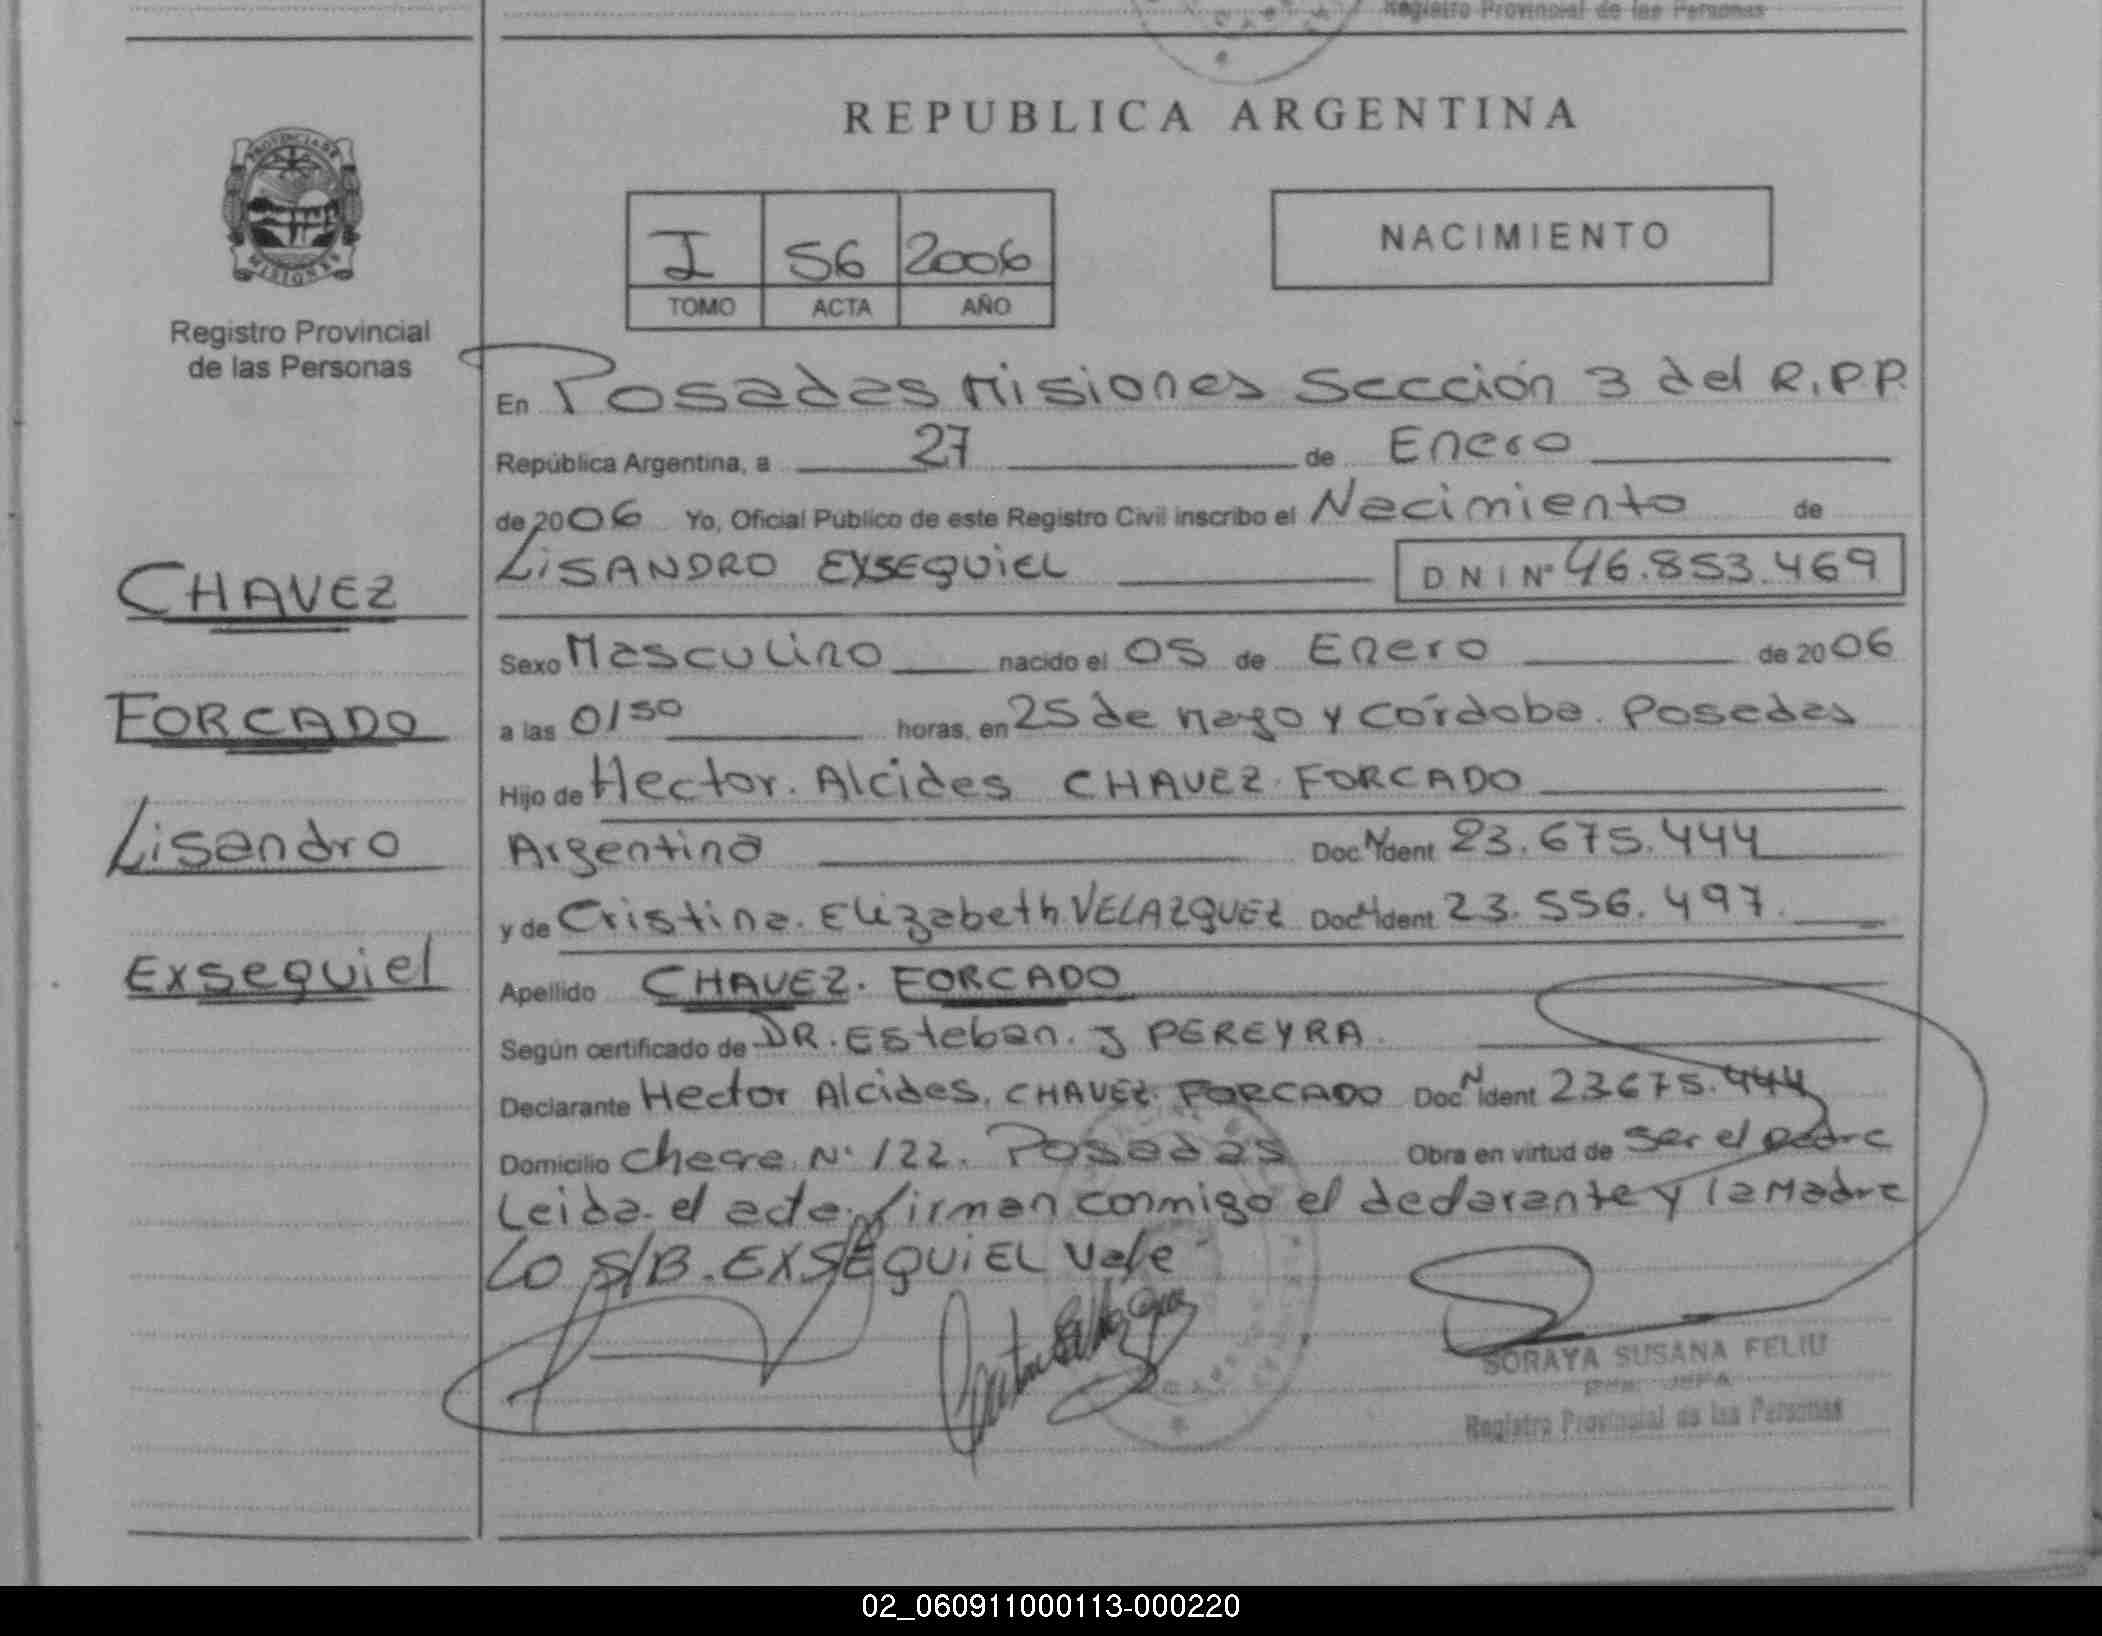 Registro Provincial de las Personas
REPUBLICA ARGENTINA
PROVINCIA DE
MISIONES
Registro Provincial
de las Personas
I 56 2006
TOMO ACTA AÑO
NACIMIENTO
En Posadas Misiones Sección 3 del R.P.P.
República Argentina, a 27 de Enero
de 2006 Yo, Oficial Público de este Registro Civil inscribo el Nacimiento de
LISANDRO EXSEQUIEL DNI Nº 46.853.469
CHAVEZ
FORCADO
Lisandro
Exsequiel
Sexo Masculino nacido el 05 de Enero de 2006
a las 0150 horas, en 25 de Mayo y Córdoba. Posadas
Hijo de Hector. Alcides CHAVEZ FORCADO
Argentina Doc N Ident 23.675.444
y de Cristina. Elizabeth VELAZQUEZ Doc N Ident 23.556.497.
Apellido CHAVEZ. FORCADO
Según certificado de DR. Esteban. J PEREYRA.
Declarante Hector Alcides. CHAVEZ. FORCADO Doc N Ident 23675.444
Domicilio Chacra. Nº 122. Posadas Obra en virtud de ser el padre
Leida. el acta. firman conmigo el declarante y la Madre
Lo S/B. EXSEQUIEL Vale
SORAYA SUSANA FELIU
JEFA
Registro Provincial de las Personas
02_060911000113-000220